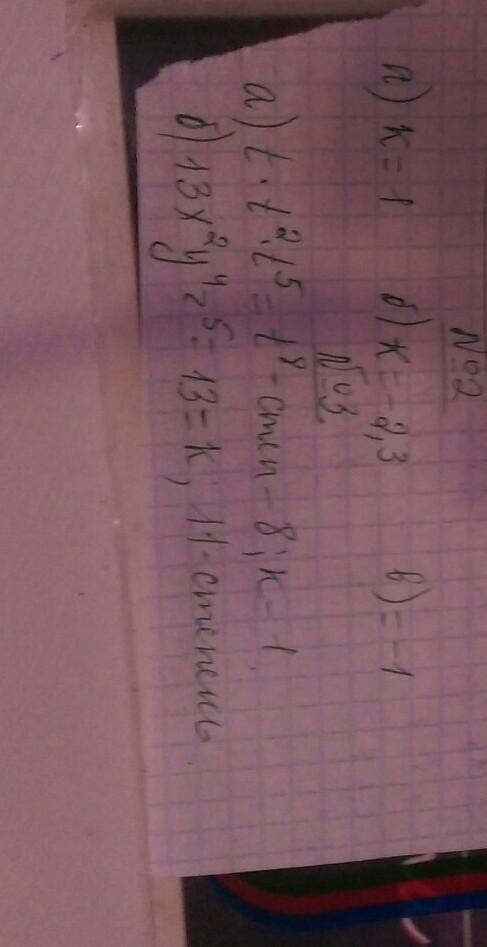 №2
а) к = 1 б) к = -2,3 в) = -1
№3
а) t · t²t⁵ = t⁸ - степ - 8; к = 1
б) 13x²y⁴z⁵ = 13 = к; 11 - степень.